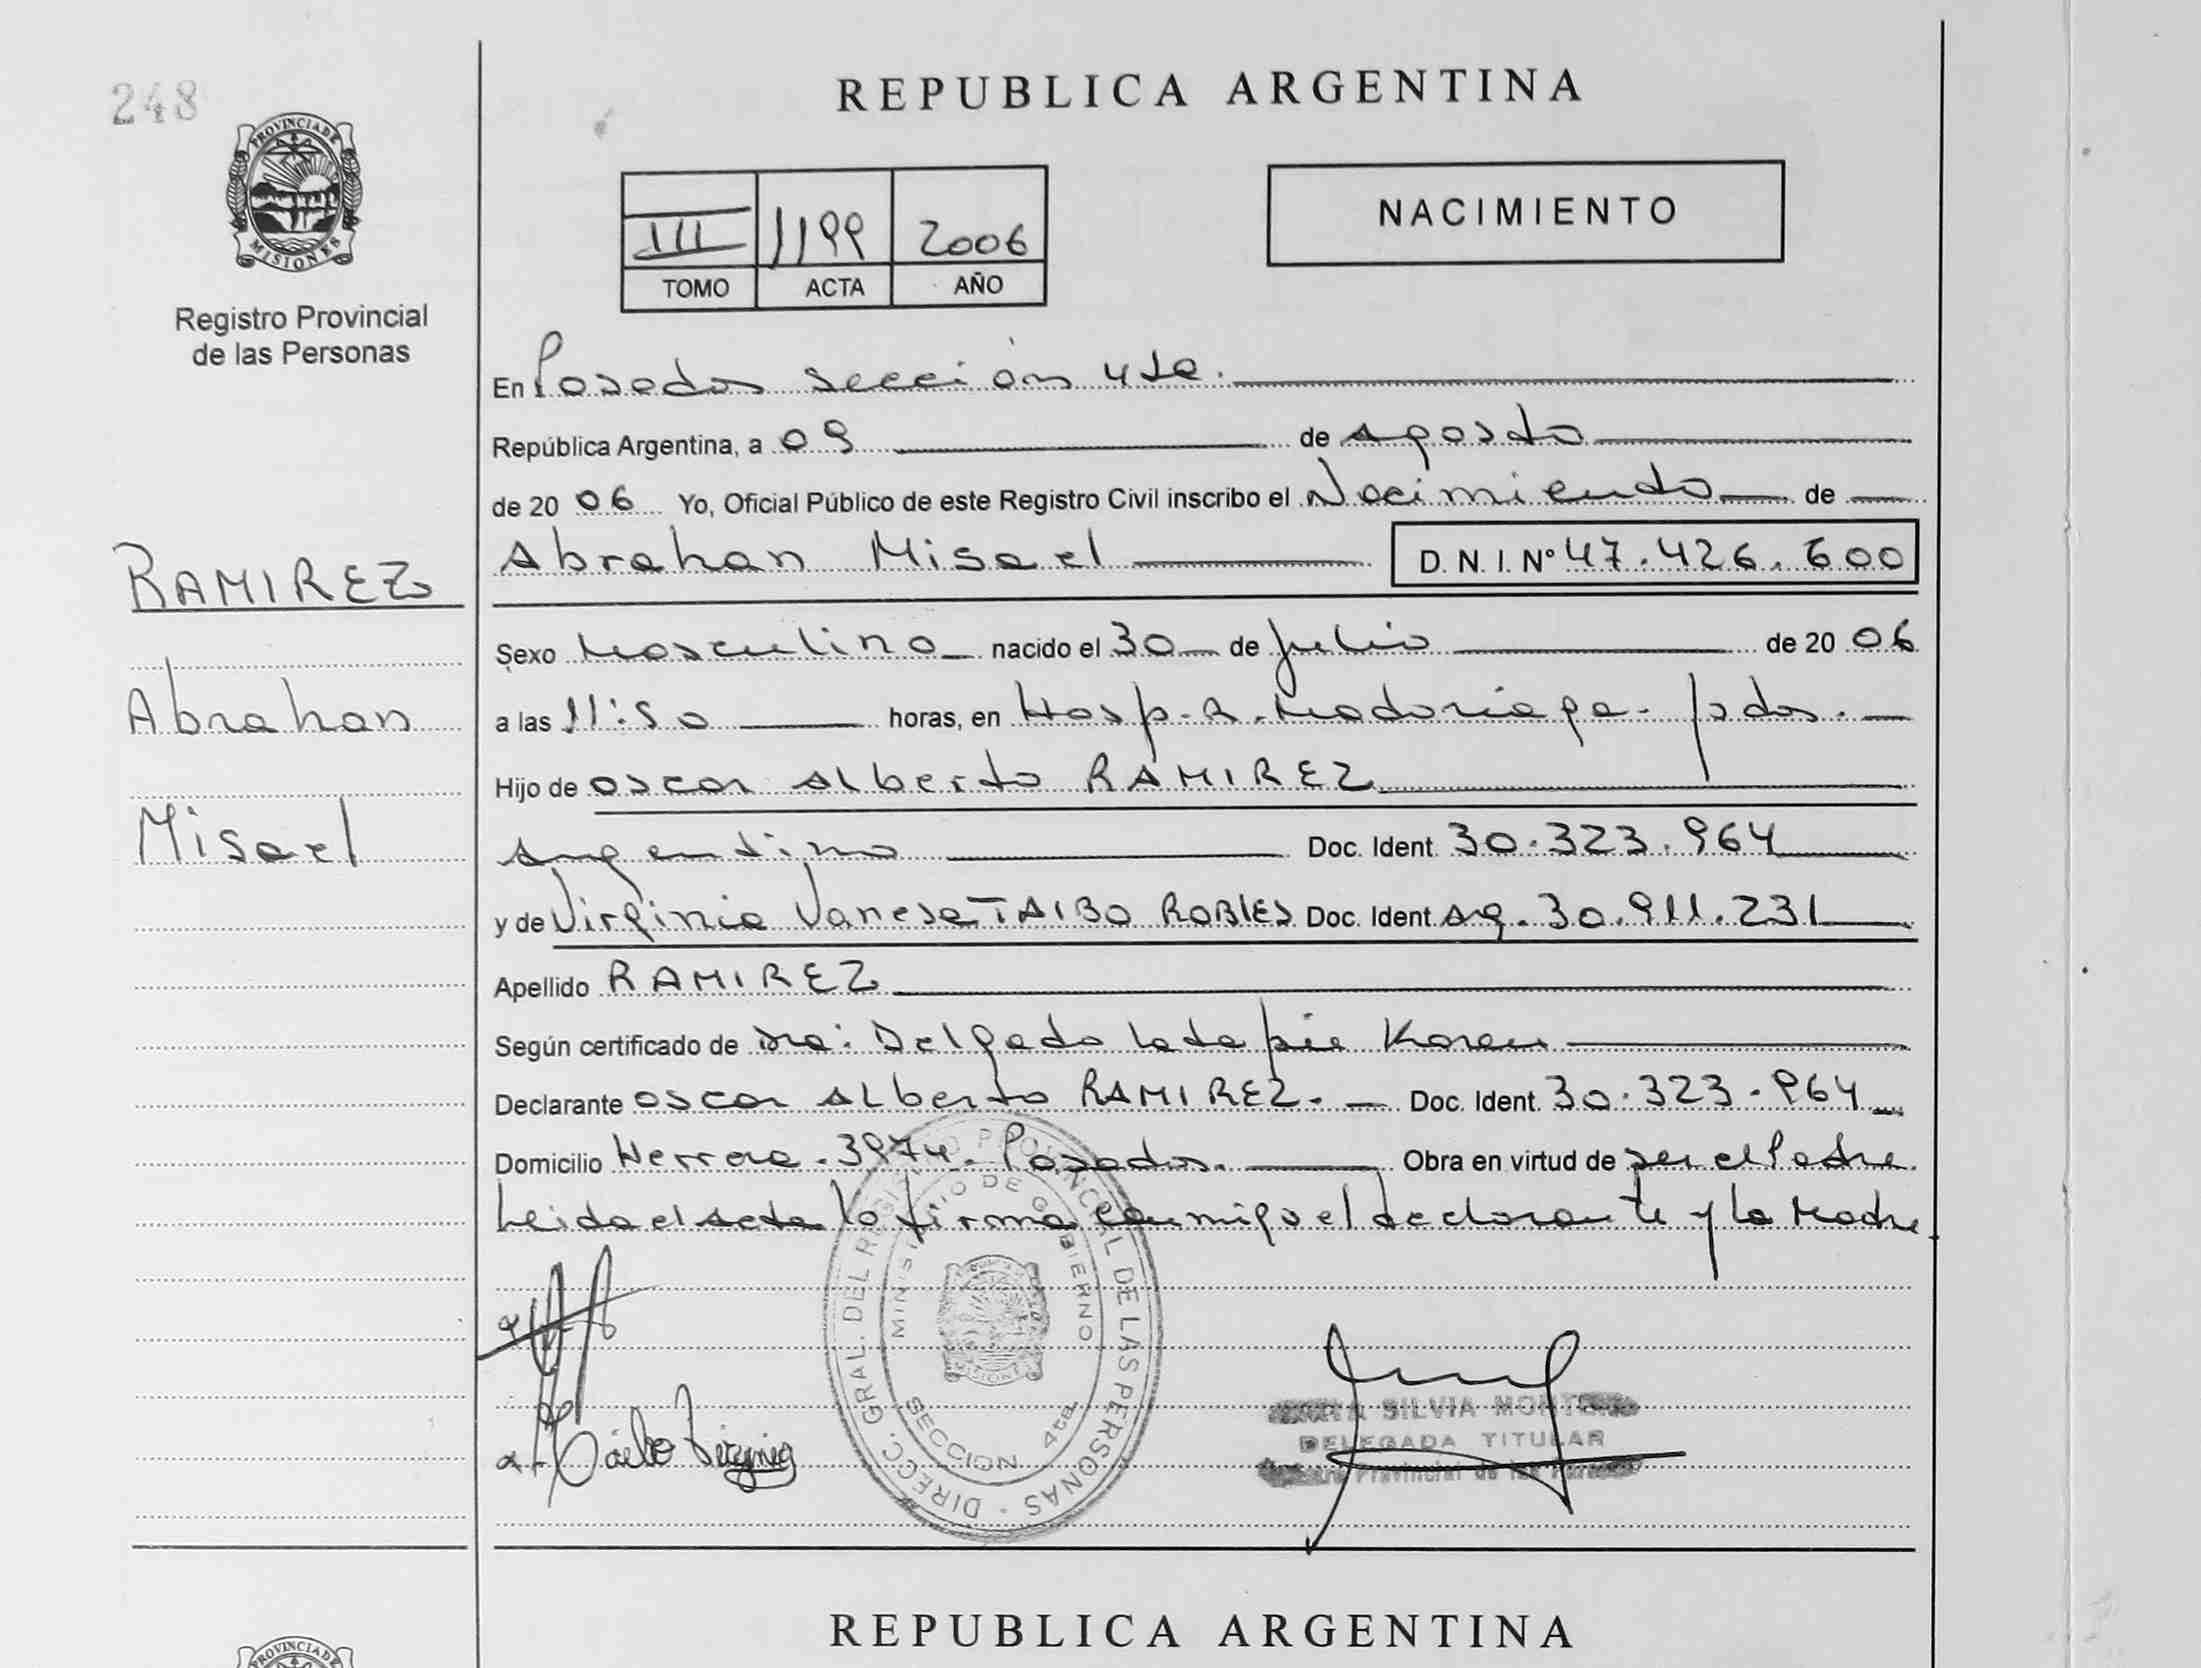 248
PROVINCIA DE
MISIONES
Registro Provincial
de las Personas
RAMIREZ
Abrahan
Misael
REPUBLICA ARGENTINA
III 1199 2006
TOMO ACTA AÑO
NACIMIENTO
En Posadas sección 4ta.
República Argentina, a 09 de agosto
de 2006 Yo, Oficial Público de este Registro Civil inscribo el Nacimiento de
Abrahan Misael D. N. I. Nº 47.426.600
Sexo Masculino nacido el 30 de julio de 2006
a las 11:50 horas, en Hosp. R. Madariaga. Psdas.
Hijo de Oscar Alberto RAMIREZ
Argentino Doc. Ident. 30.323.964
y de Virginia Vanesa TAIBO ROBLES Doc. Ident. Arg. 30.911.231
Apellido RAMIREZ
Según certificado de Dra: Delgado Latapie Karen
Declarante Oscar Alberto RAMIREZ. Doc. Ident. 30.323.964
Domicilio Herrera. 3974. Posadas. Obra en virtud de ser el Padre
Leida el acta la firma conmigo el declarante y la Madre.
DIRECC. GRAL. DEL REGISTRO PROVINCIAL DE LAS PERSONAS
MINISTERIO DE GOBIERNO
SECCION 4ta.
Taibo Virginia
SILVIA
DELEGADA TITULAR
Provincial de las
REPUBLICA ARGENTINA
PROVINCIA DE